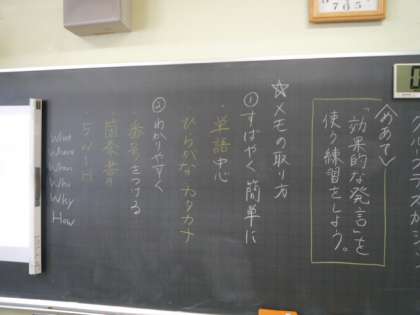 〈めあて〉
「効果的な発言」を
使う練習をしよう。
☆メモの取り方
①すばやく簡単に
・単語中心
ひらがな カタカナ
②わかりやすく
・番号をつける
箇条書き
5W1H
What
Where
When
Who
Why
How